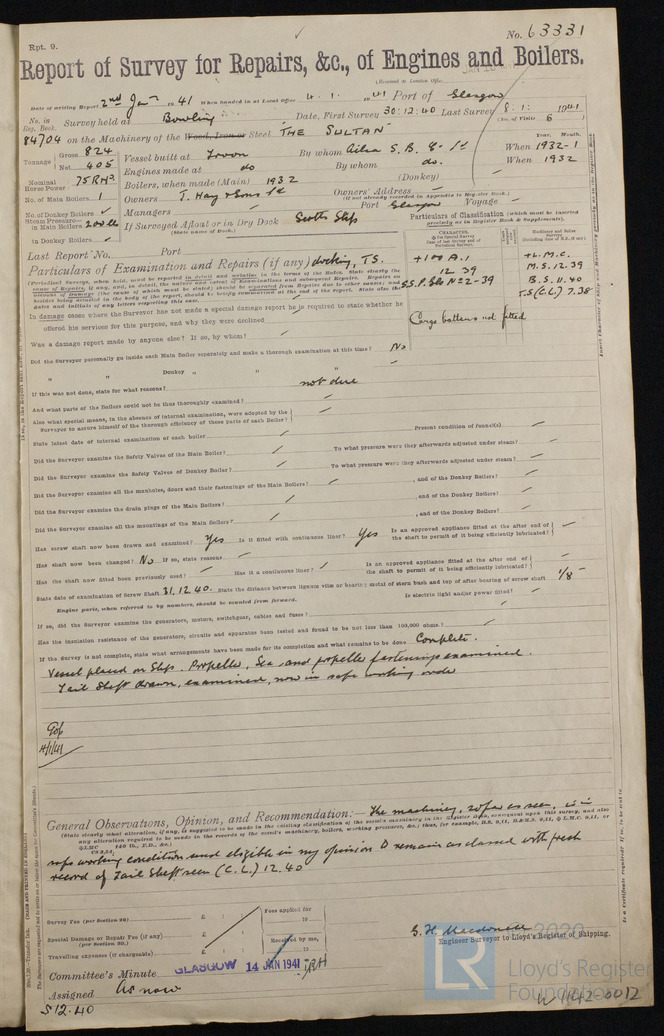 Rpt. 9.
No. 63331
Report of Survey for Repairs, &c., of Engines and Boilers.
(Received at London Office
Date of writing Report 2nd Jan 1941 When handed in at Local Office 4.1.1941 Port of Glasgow
No. in Reg. Book. Survey held at Bowling Date, First Survey 30:12:40 Last Survey 8:1:1941
(No. of Visits 6
84704 on the Machinery of the Wood, Iron or Steel "THE SULTAN" Year. Month.
Tonnage Gross 824 Vessel built at Troon By whom Ailsa S.B. Co Ld When 1932-1
Net 405 Engines made at do By whom do. When 1932
Nominal Horse Power 75RHP Boilers, when made (Main) 1932 (Donkey)
No. of Main Boilers 1 Owners T. Hay & Sons Ld Owners' Address
(if not already recorded in Appendix to Register Book.)
No. of Donkey Boilers Managers Port Glasgow Voyage
Steam Pressure in Main Boilers 200 lb If Surveyed Afloat or in Dry Dock Scotts Slip
(State name of Dock.)
in Donkey Boilers
Particulars of Classification (which must be inserted precisely as in Register Book & Supplements).
Last Report No. Port
Particulars of Examination and Repairs (if any) docking, T.S.
+100 A.1
12.39
S.S.P.Slo No2-39
+L.M.C.
M.S. 12.39
B.S. 11.40
T.S(C.L) 7.38
Cargo battens not fitted
In damage cases where the Surveyor has not made a special damage report he is required to state whether he
offered his services for this purpose, and why they were declined
Was a damage report made by anyone else? If so, by whom?
Did the Surveyor personally go inside each Main Boiler separately and make a thorough examination at this time? No
" " Donkey " " "
If this was not done, state for what reasons? not due
And what parts of the Boilers could not be thus thoroughly examined?
Also what special means, in the absence of internal examination, were adopted by the
Surveyor to assure himself of the thorough efficiency of those parts of each Boiler?
State latest date of internal examination of each boiler Present condition of funnel(s)
Did the Surveyor examine the Safety Valves of the Main Boiler? To what pressure were they afterwards adjusted under steam?
Did the Surveyor examine the Safety Valves of Donkey Boiler? To what pressure were they afterwards adjusted under steam?
Did the Surveyor examine all the manholes, doors and their fastenings of the Main Boilers? , and of the Donkey Boilers?
Did the Surveyor examine the drain plugs of the Main Boilers? , and of the Donkey Boilers?
Did the Surveyor examine all the mountings of the Main Boilers? , and of the Donkey Boilers?
Has screw shaft now been drawn and examined? Yes Is it fitted with continuous liner? Yes Is an approved appliance fitted at the after end of the shaft to permit of it being efficiently lubricated?
Has shaft now been changed? No If so, state reasons
Has the shaft now fitted been previously used? Has it a continuous liner? Is an approved appliance fitted at the after end of the shaft to permit of it being efficiently lubricated?
State date of examination of Screw Shaft 31.12.40. State the distance between lignum vitæ or bearing metal of stern bush and top of after bearing of screw shaft 1/8"
Engine parts, when referred to by numbers, should be counted from forward. Is electric light and/or power fitted?
If so, did the Surveyor examine the generators, motors, switchgear, cables and fuses?
Has the insulation resistance of the generators, circuits and apparatus been tested and found to be not less than 100,000 ohms?
If the Survey is not complete, state what arrangements have been made for its completion and what remains to be done Complete.
Vessel placed on Slip. Propeller, Sea and propeller fastenings examined.
Tail Shaft drawn, examined, now in safe working order
4/1/41
General Observations, Opinion, and Recommendation:— The machinery, so far as seen, is in
safe working condition and eligible in my opinion to remain as classed with fresh
record of Tail Shaft seen (C.L.) 12.40
Survey Fee (per Section 29) £ : : Fees applied for
Special Damage or Repair Fee (if any) £ : : 19
(per Section 29.) Received by me,
Travelling expenses (if chargeable) £ : : 19
G. H. Macdonald
Engineer Surveyor to Lloyd's Register of Shipping.
Committee's Minute GLASGOW 14 JAN 1941
Assigned As now
S 12.40
2020
LR
Lloyd's Register
Foundation
W1142-0012